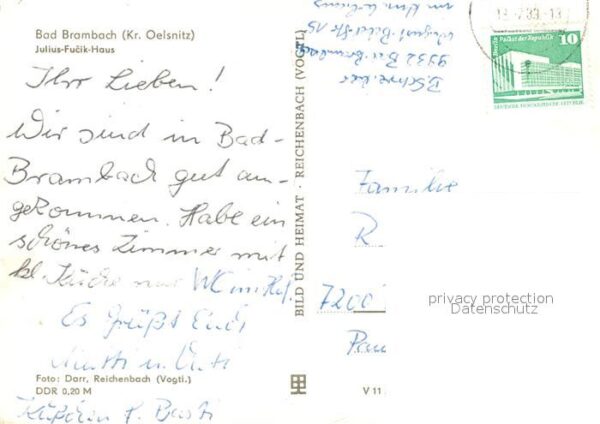 Bad Brambach (Kr. Oelsnitz)
Julius-Fučik-Haus
Ihr Lieben!
Wir sind in Bad-
Brambach gut an-
gekommen. Habe ein
schönes Zimmer mit
kl. Küche nur WC im Hof.
Es grüßt Euch
Mutti u.
Foto: Darr, Reichenbach (Vogtl.)
DDR 0,20 M
BILD UND HEIMAT · REICHENBACH (VOGTL)
V 11
9932 Bad Brambach
Berlin Palast der Republik 10
DEUTSCHE DEMOKRATISCHE REPUBLIK
Familie
R
7200
Pau
privacy protection
Datenschutz